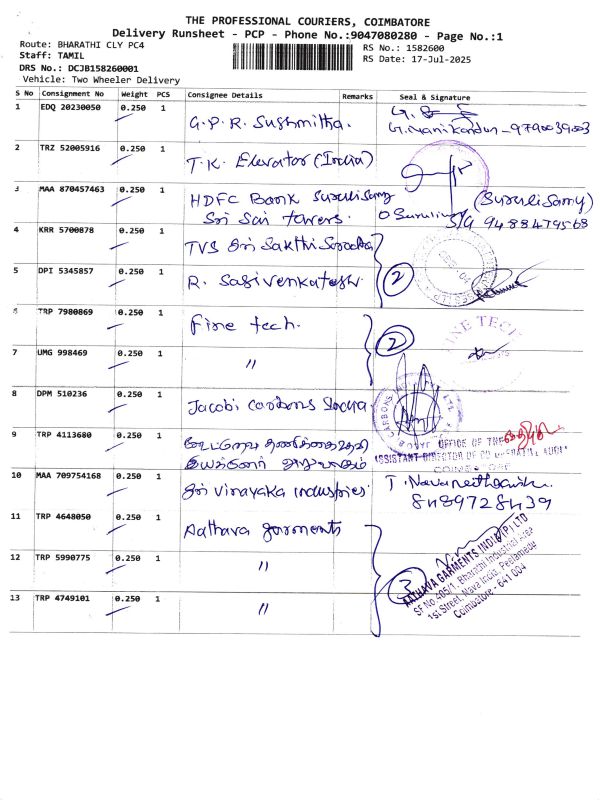 THE PROFESSIONAL COURIERS, COIMBATORE
Delivery Runsheet - PCP - Phone No.:9047080280 - Page No.:1
Route: BHARATHI CLY PC4 RS No.: 1582600
Staff: TAMIL RS Date: 17-Jul-2025
DRS No.: DCJB158260001
Vehicle: Two Wheeler Delivery
S No Consignment No Weight PCS Consignee Details Remarks Seal & Signature
1 EDQ 20230050 0.250 1 G.P.R. Sushmitha.
G.Manikandan-9790039503
2 TRZ 52005916 0.250 1 T.K. Elevator (India)
3 MAA 870457463 0.250 1 HDFC Bank Surulisamy (Surulisamy)
Sri Sai towers. S/G 9488479568
4 KRR 5700878 0.250 1 TVS Sri Sakthi
5 DPI 5345857 0.250 1 R. Sasivenkatesh. 2
6 TRP 7980869 0.250 1 Fine tech. 2
FINE TECH
7 UMG 998469 0.250 1 "
8 DPM 510236 0.250 1 Jacobi carbons
9 TRP 4113680 0.250 1 OFFICE OF THE
ASSISTANT DIRECTOR OF CO OPERATIVE AUDIT
COIMBATORE
10 MAA 709754168 0.250 1 Sri Vinayaka industries
8489728439
11 TRP 4648050 0.250 1 Aathava garments
12 TRP 5990775 0.250 1 " 3
AATHAVA GARMENTS INDIA (P) LTD
SF No 405/1, Bharathi Industrial Area
1st Street, Nava India, Peelamedu
Coimbatore - 641 004
13 TRP 4749101 0.250 1 "